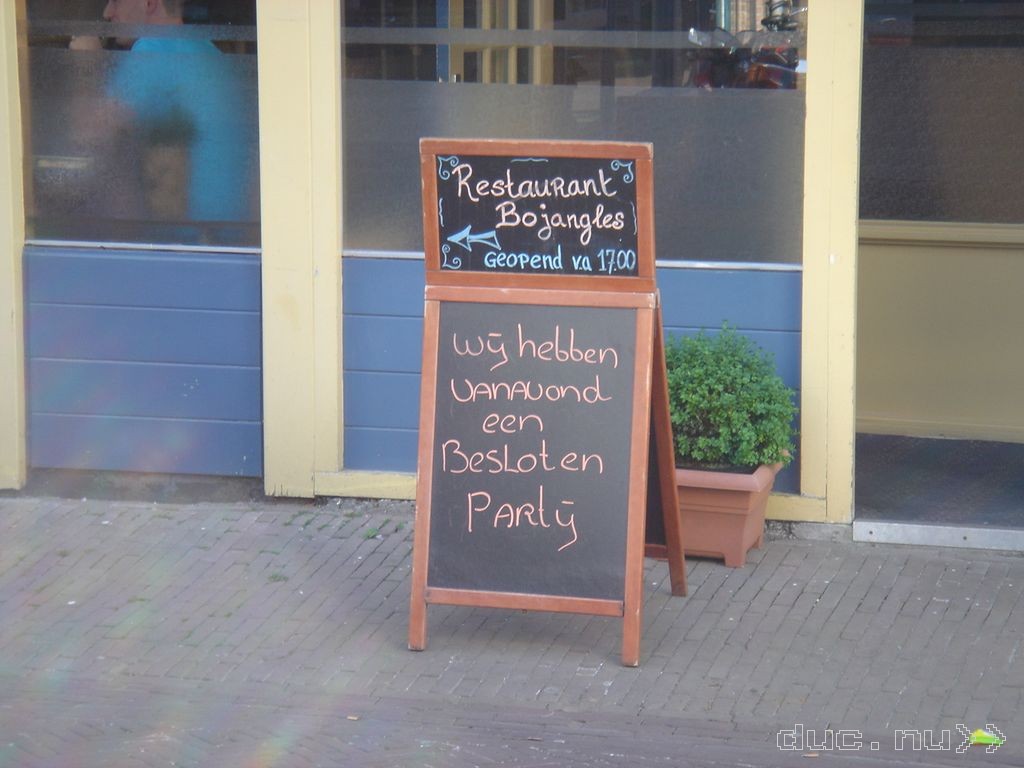 Restaurant
Bojangles
Geopend v.a 17.00
Wij hebben
vanavond
een
Besloten
Party
duc.nu